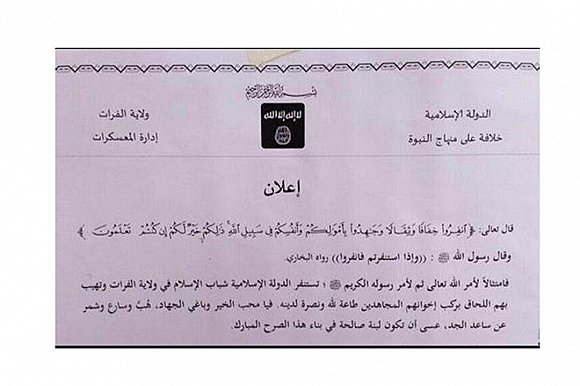 بسم الله الرحمن الرحيم
الدولة الإسلامية
خلافة على منهاج النبوة
لا إله إلا الله
ولاية الفرات
إدارة المعسكرات
إعلان
قال تعالى: ﴿ انفِرُوا خِفَافًا وَثِقَالًا وَجَاهِدُوا بِأَمْوَالِكُمْ وَأَنفُسِكُمْ فِي سَبِيلِ اللَّهِ ذَلِكُمْ خَيْرٌ لَكُمْ إِن كُنتُمْ تَعْلَمُونَ ﴾
وقال رسول الله ﷺ : ((وإذا استنفرتم فانفروا)) رواه البخاري.
فامتثالاً لأمر الله تعالى ثم لأمر رسوله الكريم ﷺ ؛ تستنفر الدولة الإسلامية شباب الإسلام في ولاية الفرات وتهيب
بهم اللحاق بركب إخوانهم المجاهدين طاعة لله ونصرة لدينه. فيا محب الخير وباغي الجهاد، هُبَّ وسارع وشمر
عن ساعد الجد، عسى أن تكون لبنة صالحة في بناء هذا الصرح المبارك.